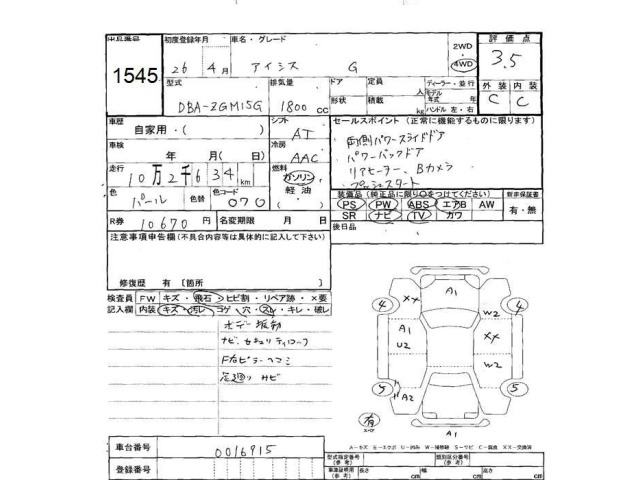 出品番号 初度登録年月 車名・グレード 2WD 4WD 評価点
1545 26年 4月 アイシス G 3.5
型式 排気量 ドア 定員 人 ディーラー・並行 外装 内装
DBA-ZGM15G 1800cc 形状 積載 kg モデル年式 年 ハンドル 左・右 C C
車歴 シフト セールスポイント(正常に機能するものに限ります)
自家用・( ) AT 両側パワースライドドア
車検 冷房 パワーバックドア
年 月( 日) AAC リアヒーター、Bカメラ
走行 燃料 プッシュスタート
10万2千634km ガソリン 軽油・
色 色替 色コード 装備品(純正品に限り○をつけてください) 新車保証書
パール 070 PS PW ABS エアB AW 有・無
R券 10670円 名変期限 月 日 SR ナビ TV カワ
注意事項申告欄(不具合内容等は具体的に記入して下さい) 後日品
修復歴 有〔箇所
検査員記入欄 FW キズ・飛石・ヒビ割・リペア跡・×要
内装 キズ・汚レ・コゲ・穴・スレ・キレ・破レ
ボデー振動
ナビ、セキュリティロック
F右ピラーヘコミ
足廻りサビ
A1
4 XX W2 4
A1 XX
U2 W2
5 A2 5
有 スペア
A1
A-キズ E-エクボ U-凹み W-補修跡 S-サビ C-腐食 XX-交換済
車台番号 0016915
型式指定番号(参考) 類別区分番号(参考)
登録番号 車検証明用(参考) 長さ cm 幅 cm 高さ cm